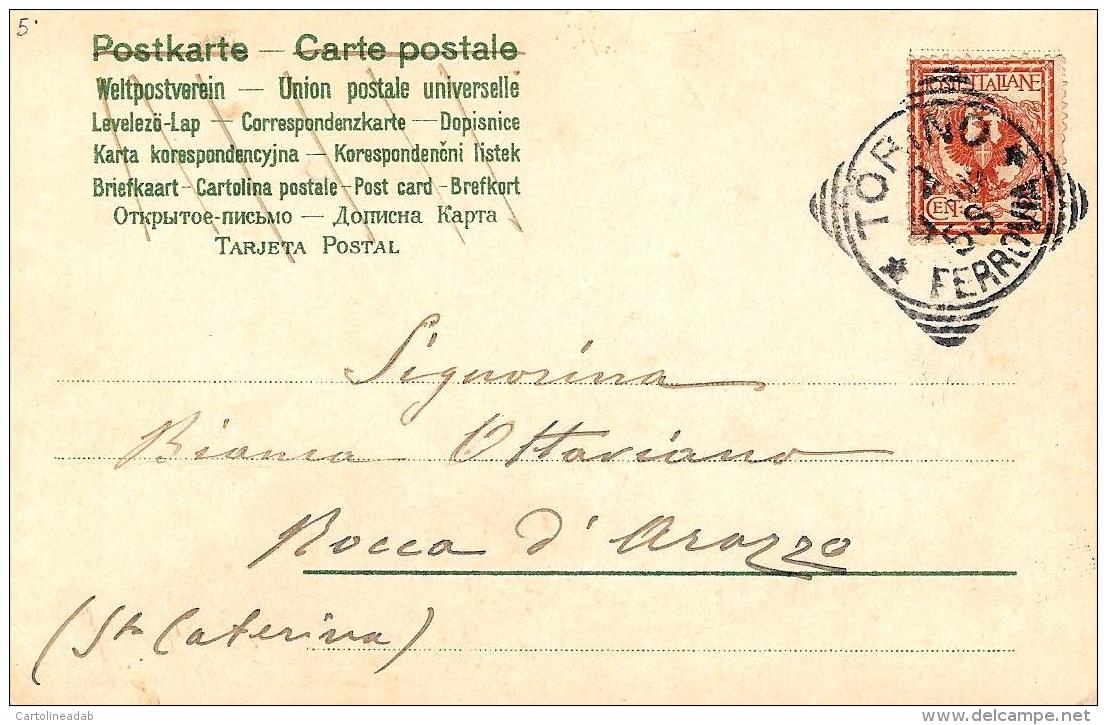 5.
Postkarte — Carte postale
Weltpostverein — Union postale universelle
Levelezö-Lap — Correspondenzkarte — Dopisnice
Karta korespondencyjna — Korespondenčni listek
Briefkaart - Cartolina postale - Post card - Brefkort
Открытое-письмо — Дописна Карта
Tarjeta Postal
POSTE ITALIANE
TORINO
FERROVIA
CENT
Signorina
Bianca Ottaviano
Rocca d'Arazzo
(Sta Caterina)
Cartolineadab
delcampe.net